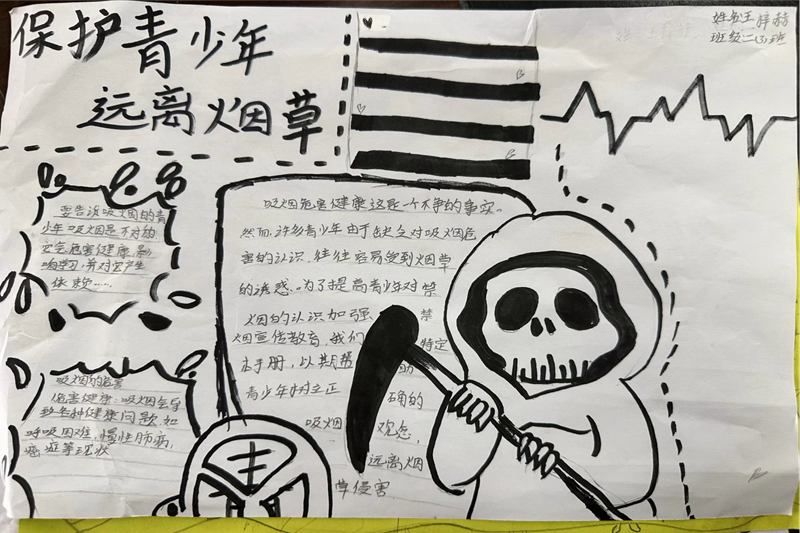 保护青少年
远离烟草
姓名王梓赫
班级二(3)班
要告诉吸烟的青
少年吸烟是不对的
它会危害健康,影
响学习,并对它产生
依赖……
吸烟危害健康这是一个不争的事实。
然而,许多青少年由于缺乏对吸烟危
害的认识,往往容易受到烟草
的诱惑。为了提高青少年对禁
烟的认识加强 禁
烟宣传教育,我们 特定
本手册,以期帮 助
青少年树立正 确的
吸烟 观念,
远离烟
草侵害
吸烟的危害
危害健康:吸烟会导
致各种健康问题,如
呼吸困难,慢性肺病,
癌症等现状